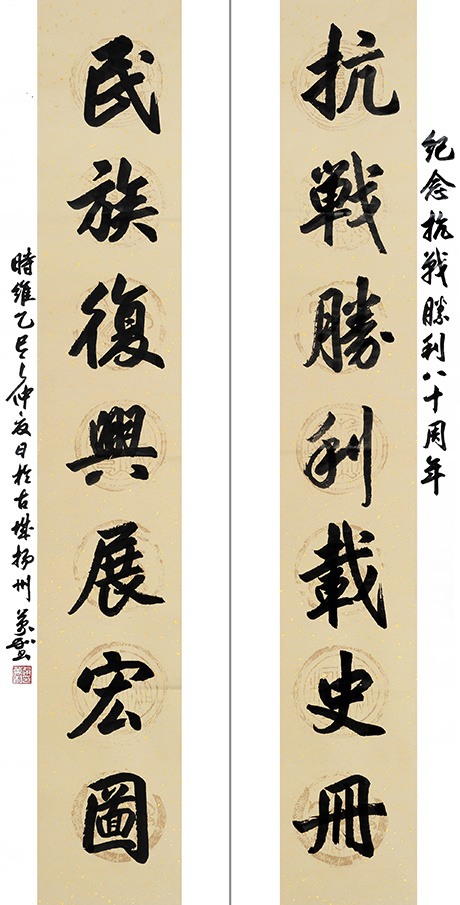 紀念抗戰勝利八十周年
抗戰勝利載史冊
民族復興展宏圖
時維乙巳之仲夏日於古城揚州